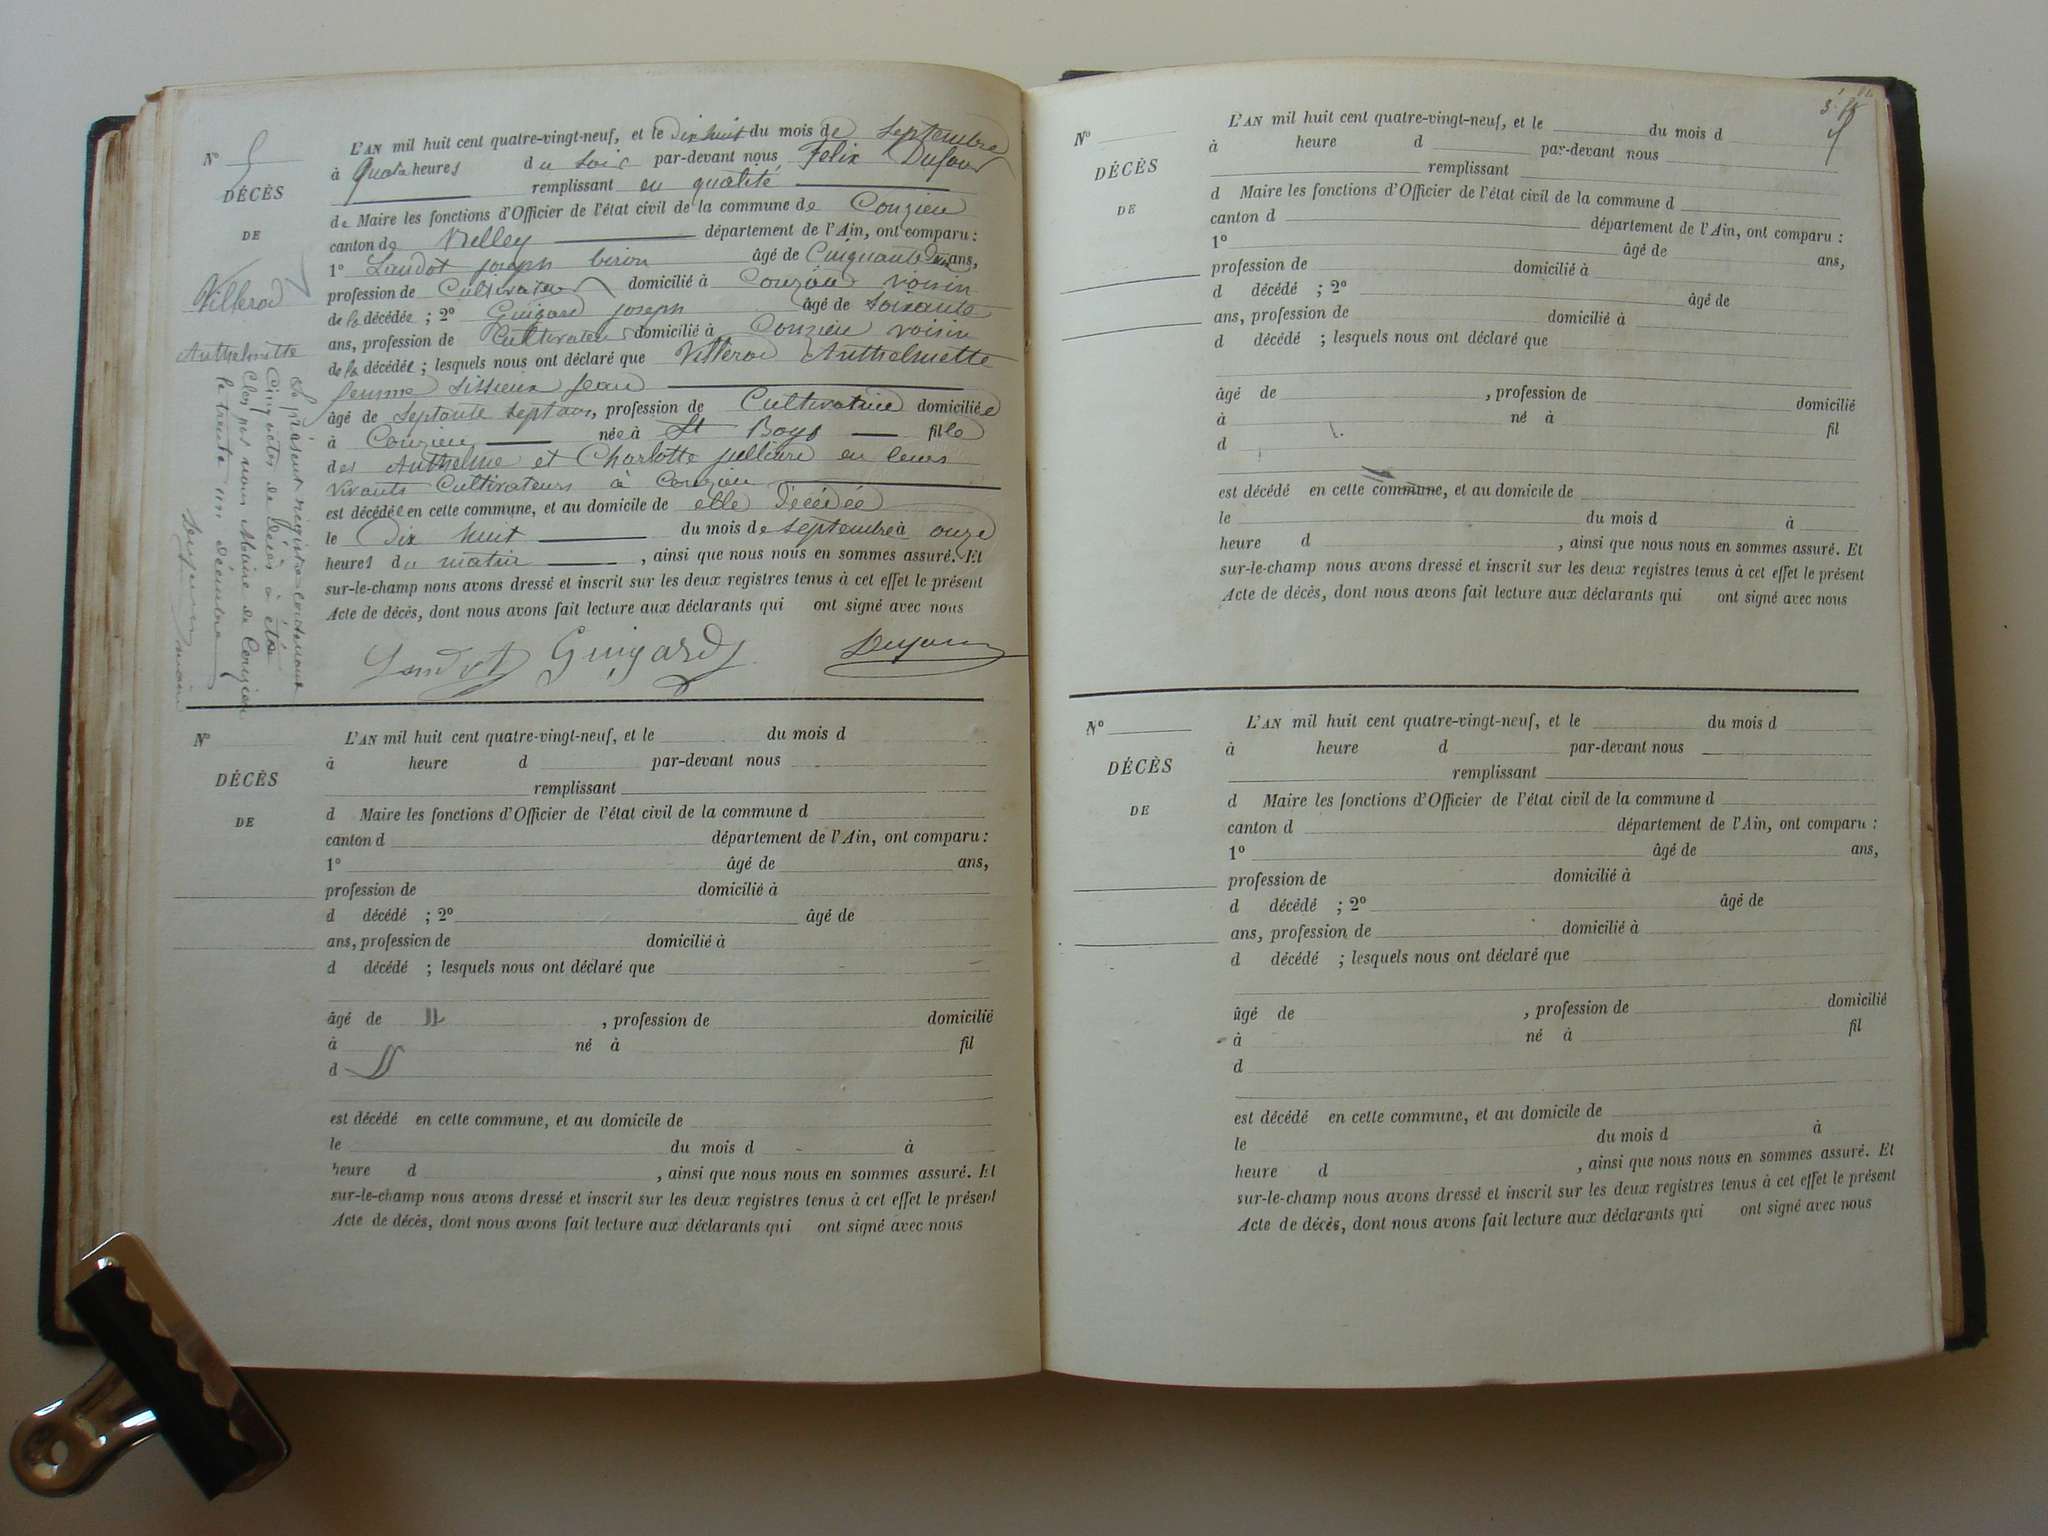 N° 5
DÉCÈS
DE
Villerod
Anthelmette
L'AN mil huit cent quatre-vingt-neuf, et le dix huit du mois de Septembre
à quatre heures du soir par-devant nous Félix Dufour
remplissant en qualité
de Maire les fonctions d'Officier de l'état civil de la commune de Conzieu
canton de Belley département de l'Ain, ont comparu :
1° Landot joseph âgé de Cinquante ans,
profession de Cultivateur domicilié à Conzieu voisin
de la décédée ; 2° Guigard joseph âgé de soixante
ans, profession de Cultivateur domicilié à Conzieu voisin
de la décédée ; lesquels nous ont déclaré que Villerod Anthelmette
femme Jean
âgé de Septante sept ans, profession de Cultivatrice domiciliée
à Conzieu née à St Boys fille
des Anthelme et Charlotte julliard en leurs
vivants Cultivateurs à Conzieu
est décédée en cette commune, et au domicile de elle Décédée
le Dix huit du mois de septembre à onze
heures du matin , ainsi que nous nous en sommes assuré. Et
sur-le-champ nous avons dressé et inscrit sur les deux registres tenus à cet effet le présent
Acte de décès, dont nous avons fait lecture aux déclarants qui ont signé avec nous
Landot Guigard Dufour
Le présent registre contenant
Cinq actes de décès à été
Clos par nous Maire de Conzieu
le trente un décembre
Dufour maire
N°
DÉCÈS
DE
L'AN mil huit cent quatre-vingt-neuf, et le du mois d
à heure d par-devant nous
remplissant
d Maire les fonctions d'Officier de l'état civil de la commune d
canton d département de l'Ain, ont comparu :
1° âgé de ans,
profession de domicilié à
d décédé ; 2° âgé de
ans, profession de domicilié à
d décédé ; lesquels nous ont déclaré que
âgé de , profession de domicilié
à né à fil
d
est décédé en cette commune, et au domicile de
le du mois d à
heure d , ainsi que nous nous en sommes assuré. Et
sur-le-champ nous avons dressé et inscrit sur les deux registres tenus à cet effet le présent
Acte de décès, dont nous avons fait lecture aux déclarants qui ont signé avec nous
N°
DÉCÈS
DE
L'AN mil huit cent quatre-vingt-neuf, et le du mois d
à heure d par-devant nous
remplissant
d Maire les fonctions d'Officier de l'état civil de la commune d
canton d département de l'Ain, ont comparu :
1° âgé de ans,
profession de domicilié à
d décédé ; 2° âgé de
ans, profession de domicilié à
d décédé ; lesquels nous ont déclaré que
âgé de , profession de domicilié
à né à fil
d
est décédé en cette commune, et au domicile de
le du mois d à
heure d , ainsi que nous nous en sommes assuré. Et
sur-le-champ nous avons dressé et inscrit sur les deux registres tenus à cet effet le présent
Acte de décès, dont nous avons fait lecture aux déclarants qui ont signé avec nous
N°
DÉCÈS
DE
L'AN mil huit cent quatre-vingt-neuf, et le du mois d
à heure d par-devant nous
remplissant
d Maire les fonctions d'Officier de l'état civil de la commune d
canton d département de l'Ain, ont comparu :
1° âgé de ans,
profession de domicilié à
d décédé ; 2° âgé de
ans, profession de domicilié à
d décédé ; lesquels nous ont déclaré que
âgé de , profession de domicilié
à né à fil
d
est décédé en cette commune, et au domicile de
le du mois d à
heure d , ainsi que nous nous en sommes assuré. Et
sur-le-champ nous avons dressé et inscrit sur les deux registres tenus à cet effet le présent
Acte de décès, dont nous avons fait lecture aux déclarants qui ont signé avec nous